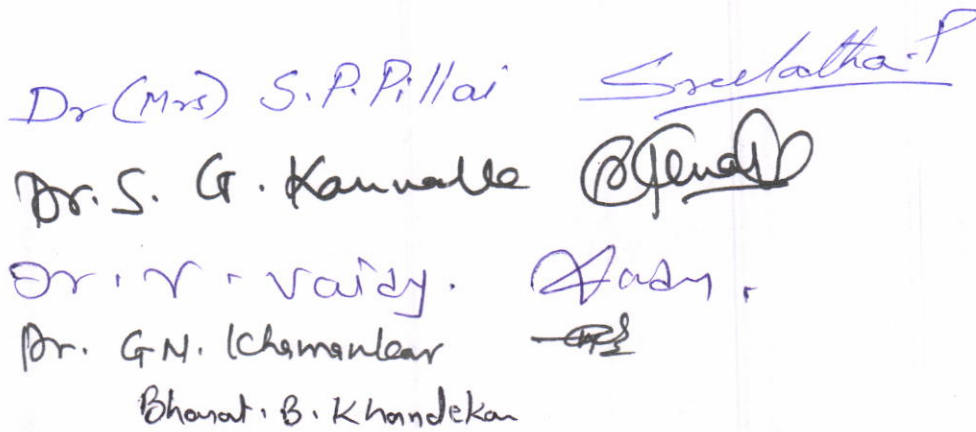 Dr (Mrs) S.P. Pillai Sreelatha.P
Dr. S. G.
Dr. V. Vaidy.
Dr. G.N. Khamankar
Bharat. B. Khandekar